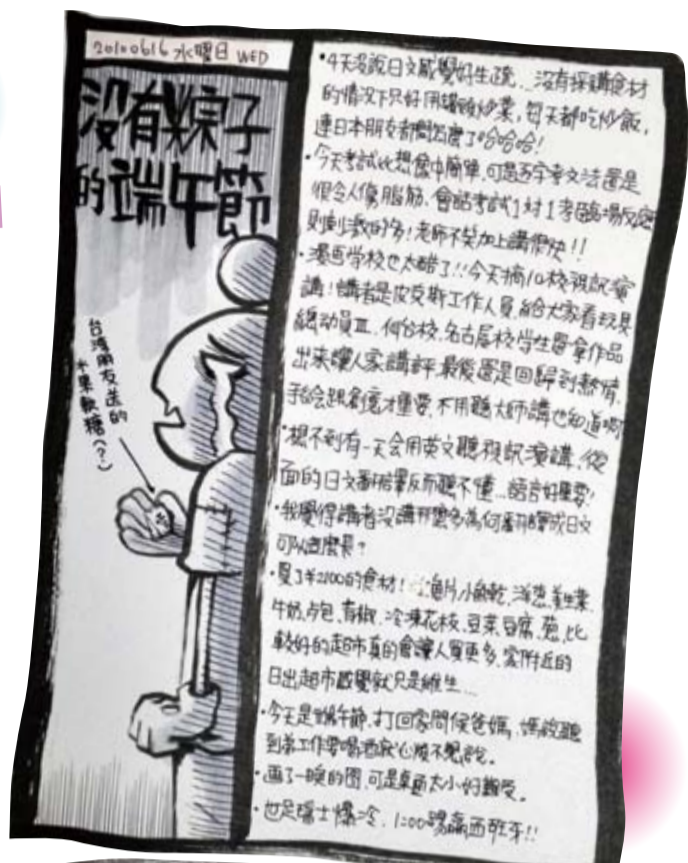 20100616 水曜日 WED
没有粽子
的端午節
台灣朋友送的
水果軟糖(?)
•4天沒說日文感覺好生疏...沒有採購食材
的情況下只好用罐頭炒菜,每天都吃炒飯,
連日本朋友都問怎麼了哈哈哈!
•今天考試比想像中簡單,可是五字考文法還是
很令人傷腦筋、會話考試1對1考臨場反應
則刺激的多!老師不笑加上講很快!!
•漫画学校也太酷了!!今天搞10校視訊演
講!講者是皮克斯工作人員,給大家看玩具
總動員Ⅲ、仙台校、名古屋校学生還拿作品
出來讓人家講評,最後還是回歸到熱情、
手繪跟創意才重要,不用聽大師講也知道啊
•想不到有一天会用英文聽視訊演講、後
面的日文翻譯反而聽不懂...語言好重要!
•我覺得講者沒講那麼多為何翻譯成日文
可以這麼長?
•買了¥2100的食材! 魚片,小魚乾、洋蔥,
牛奶,青椒、冷凍花枝、豆菜,豆腐,蔥、比
較好的超市真的會讓人買更多,家附近的
日出超市感覺就只是維生...
•今天是端午節,打回家問候爸媽,媽說聽
到爸工作要喝酒就心酸不想說。
•画了一晚的图,可是桌面太小好難受。
•世足瑞士爆冷,1:00踢贏西班牙!!